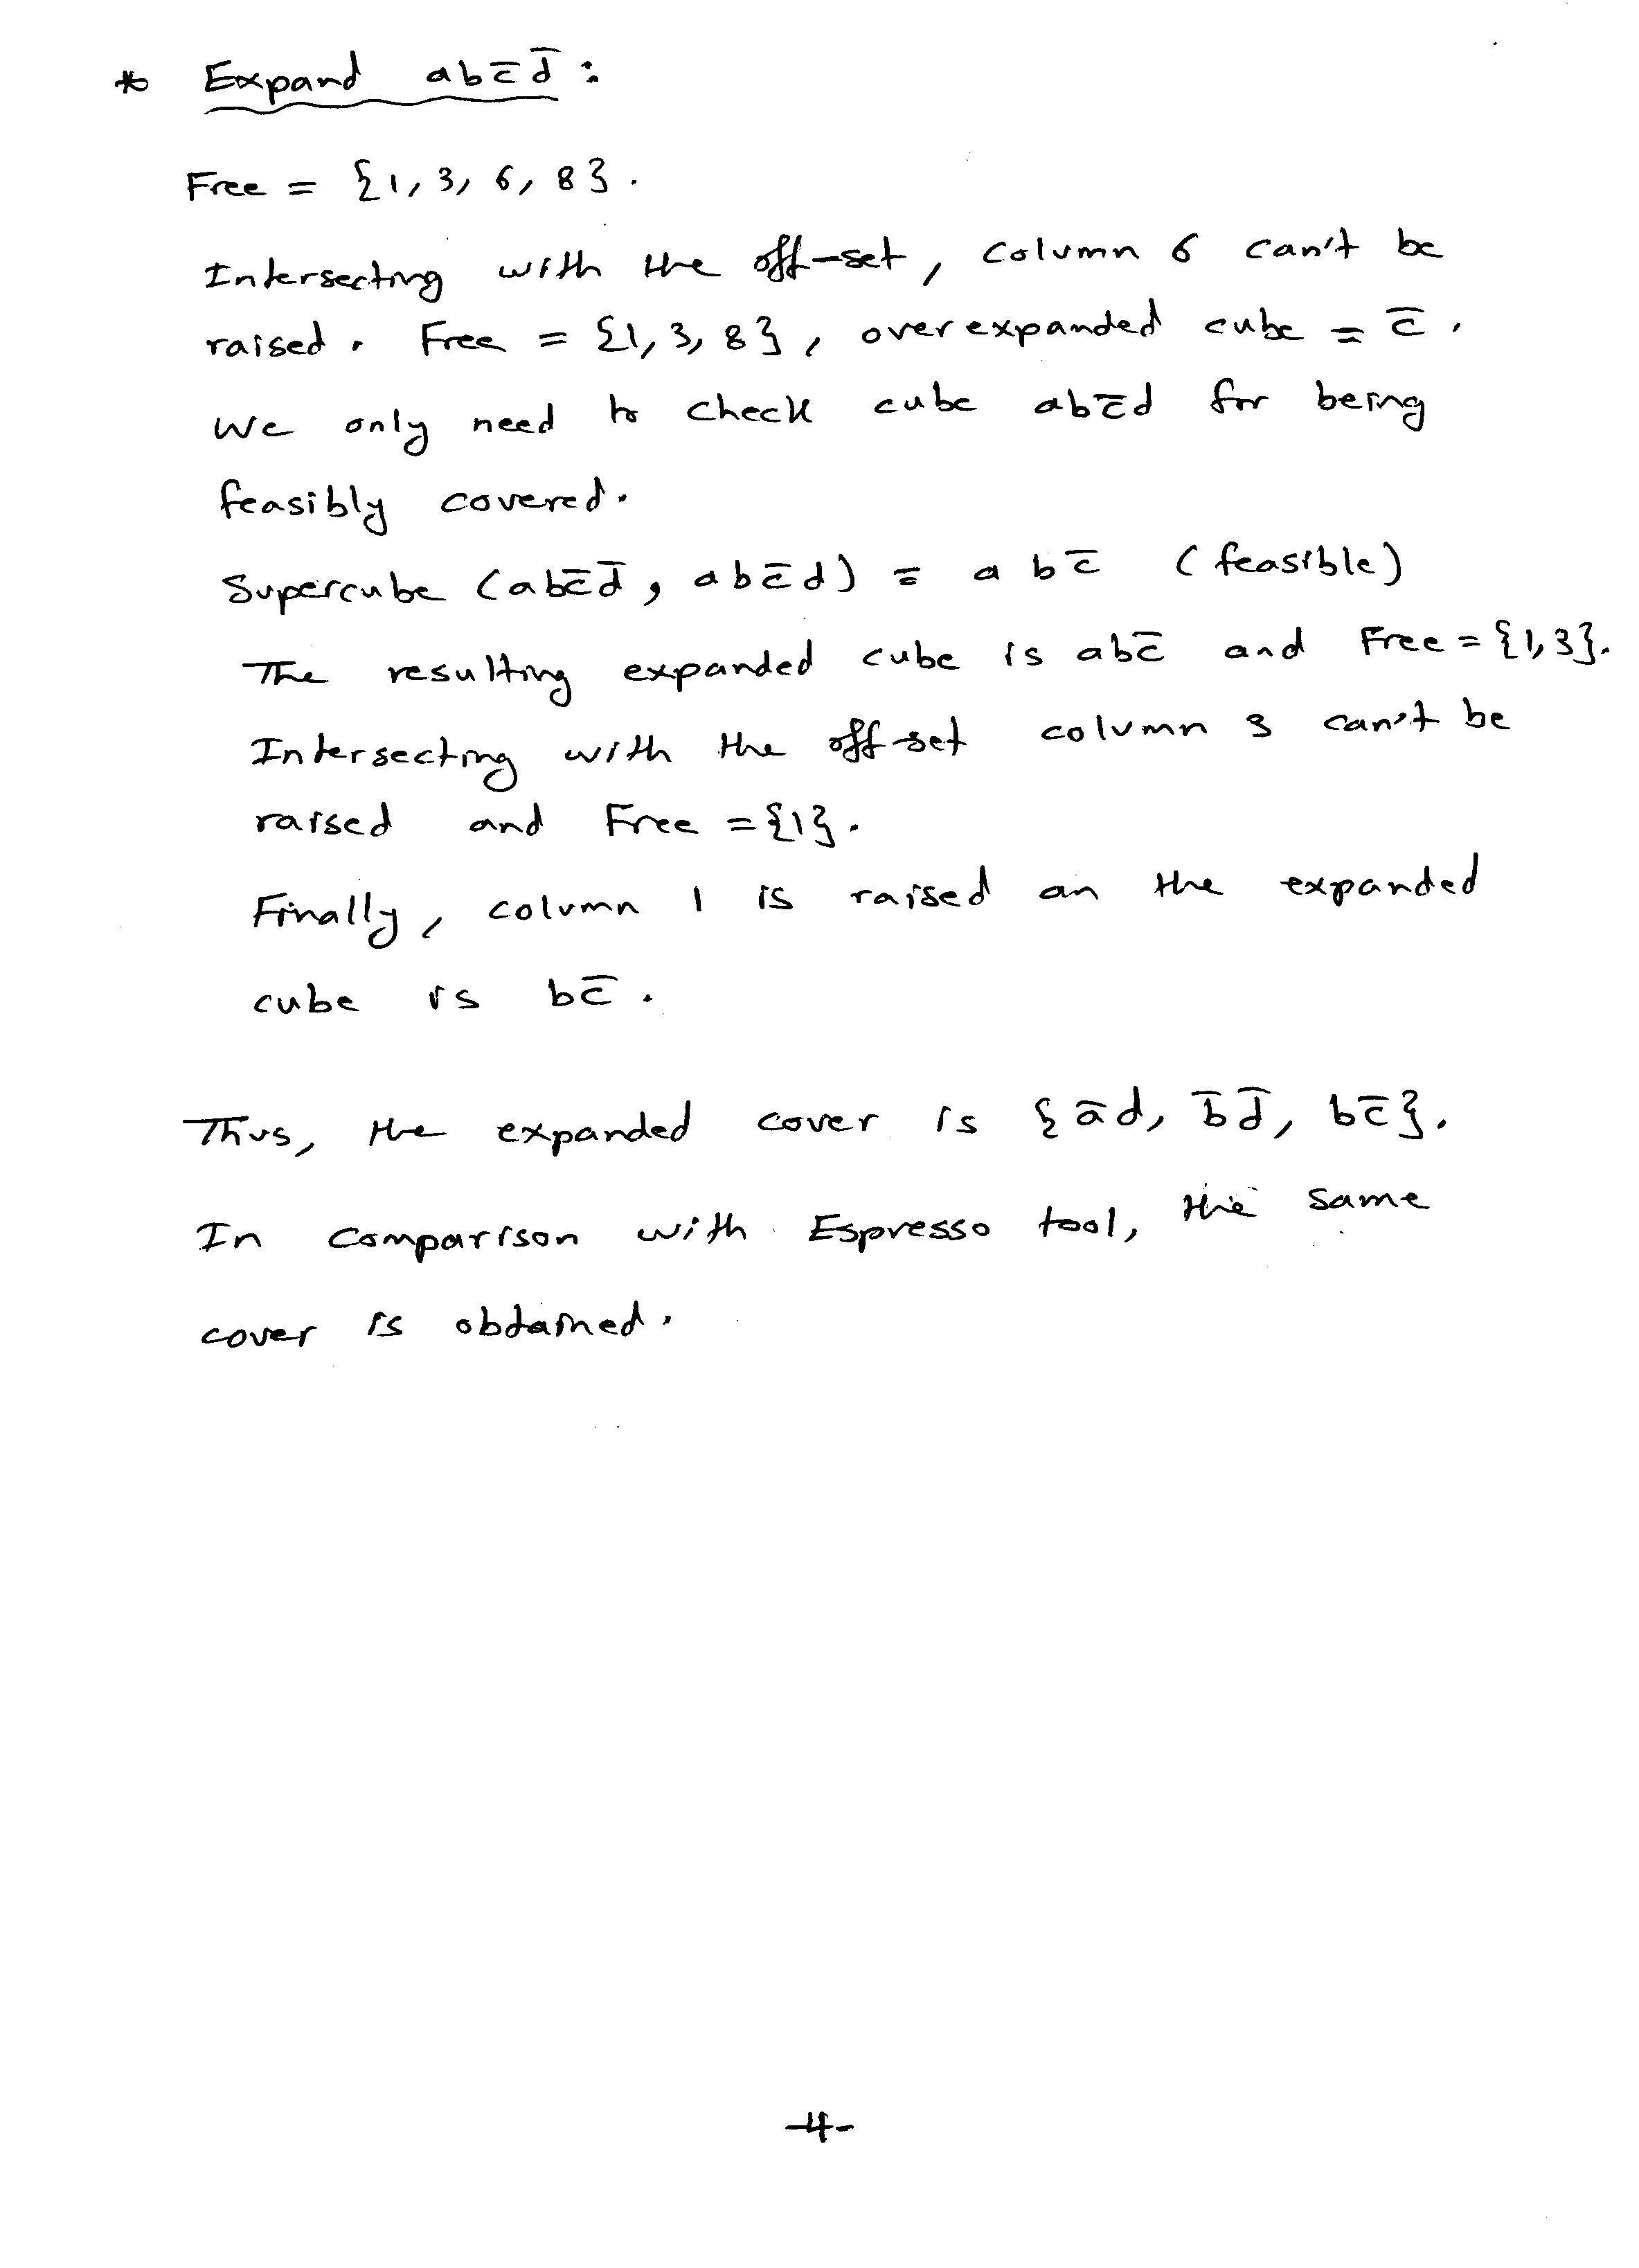 * Expand ab c̅ d̅ :
Free = {1, 3, 6, 8} .
Intersecting with the off-set, column 6 can't be
raised. Free = {1, 3, 8}, overexpanded cube = c̅ .
We only need to check cube abc̅d for being
feasibly covered.
Supercube (abc̅d̅, abc̅d) = abc̅ (feasible)
The resulting expanded cube is abc̅ and Free = {1,3}.
Intersecting with the off-set column 3 can't be
raised and Free = {1}.
Finally, column 1 is raised an the expanded
cube is bc̅ .
Thus, the expanded cover is {a̅d, b̅d̅, bc̅}.
In comparison with Espresso tool, the same
cover is obtained.
-4-